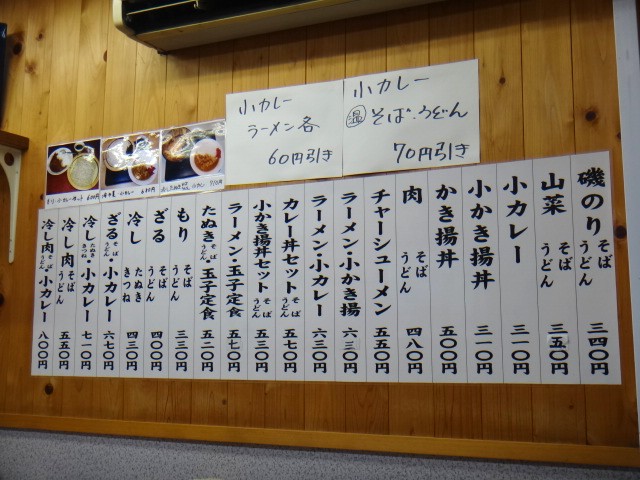 小カレー
ラーメン各
60円引き
小カレー
温 そば・うどん
70円引き
磯のり そば うどん 三四〇円
山菜 そば うどん 三五〇円
小カレー 三一〇円
小かき揚丼 三一〇円
かき揚丼 五〇〇円
肉 そば うどん 四八〇円
チャーシューメン 五五〇円
ラーメン・小かき揚 六三〇円
ラーメン・小カレー 六三〇円
カレー丼セット そば うどん 五七〇円
小かき揚丼セット そば うどん 五三〇円
ラーメン・玉子定食 五七〇円
たぬき そば うどん ・玉子定食 五二〇円
もり そば うどん 三三〇円
ざる そば うどん 四〇〇円
冷し たぬき きつね 四三〇円
ざる そば うどん ・小カレー 六七〇円
冷し たぬき きつね ・小カレー 七一〇円
冷し肉 そば うどん 五五〇円
冷し肉 そば うどん ・小カレー 八〇〇円